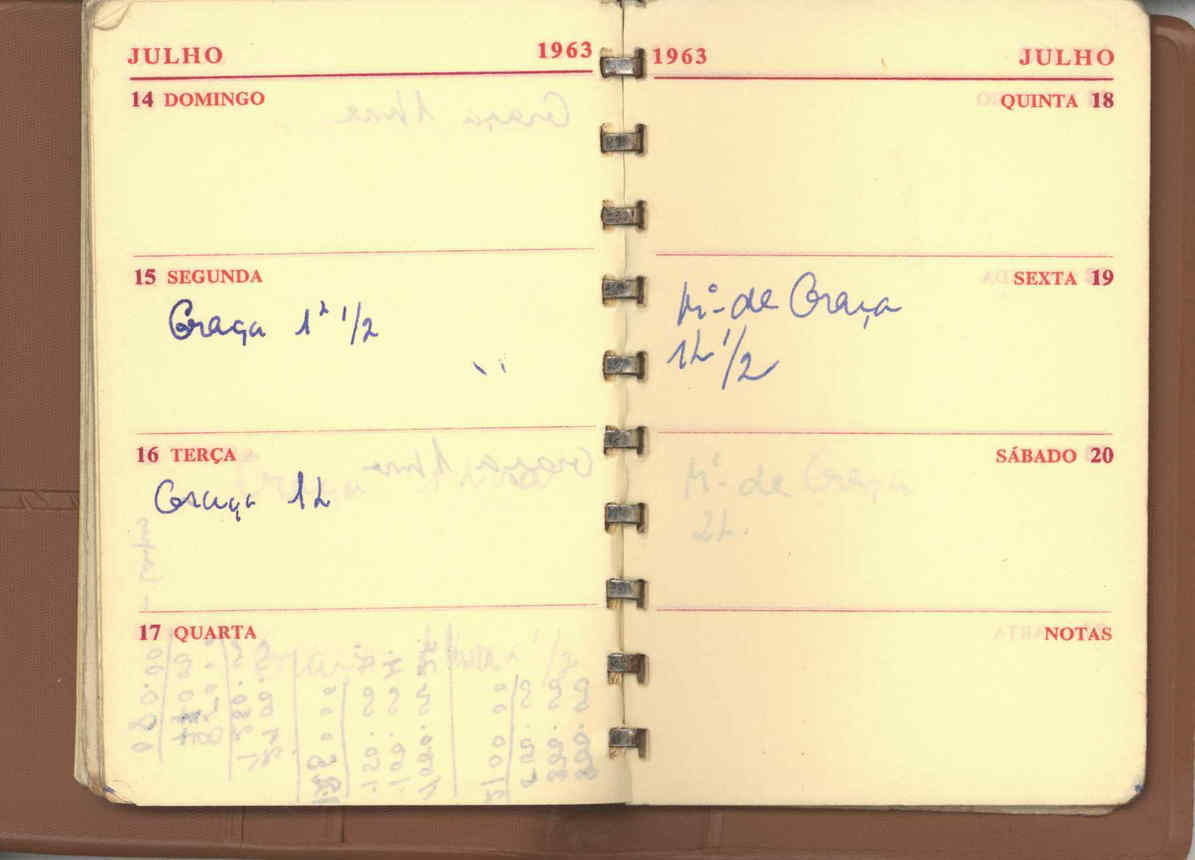 JULHO 1963
14 DOMINGO
15 SEGUNDA
Graça 1h 1/2
16 TERÇA
Graça 1h
17 QUARTA
1963 JULHO
QUINTA 18
SEXTA 19
Mª de Graça
1h 1/2
SÁBADO 20
Mª de Graça
2h.
NOTAS